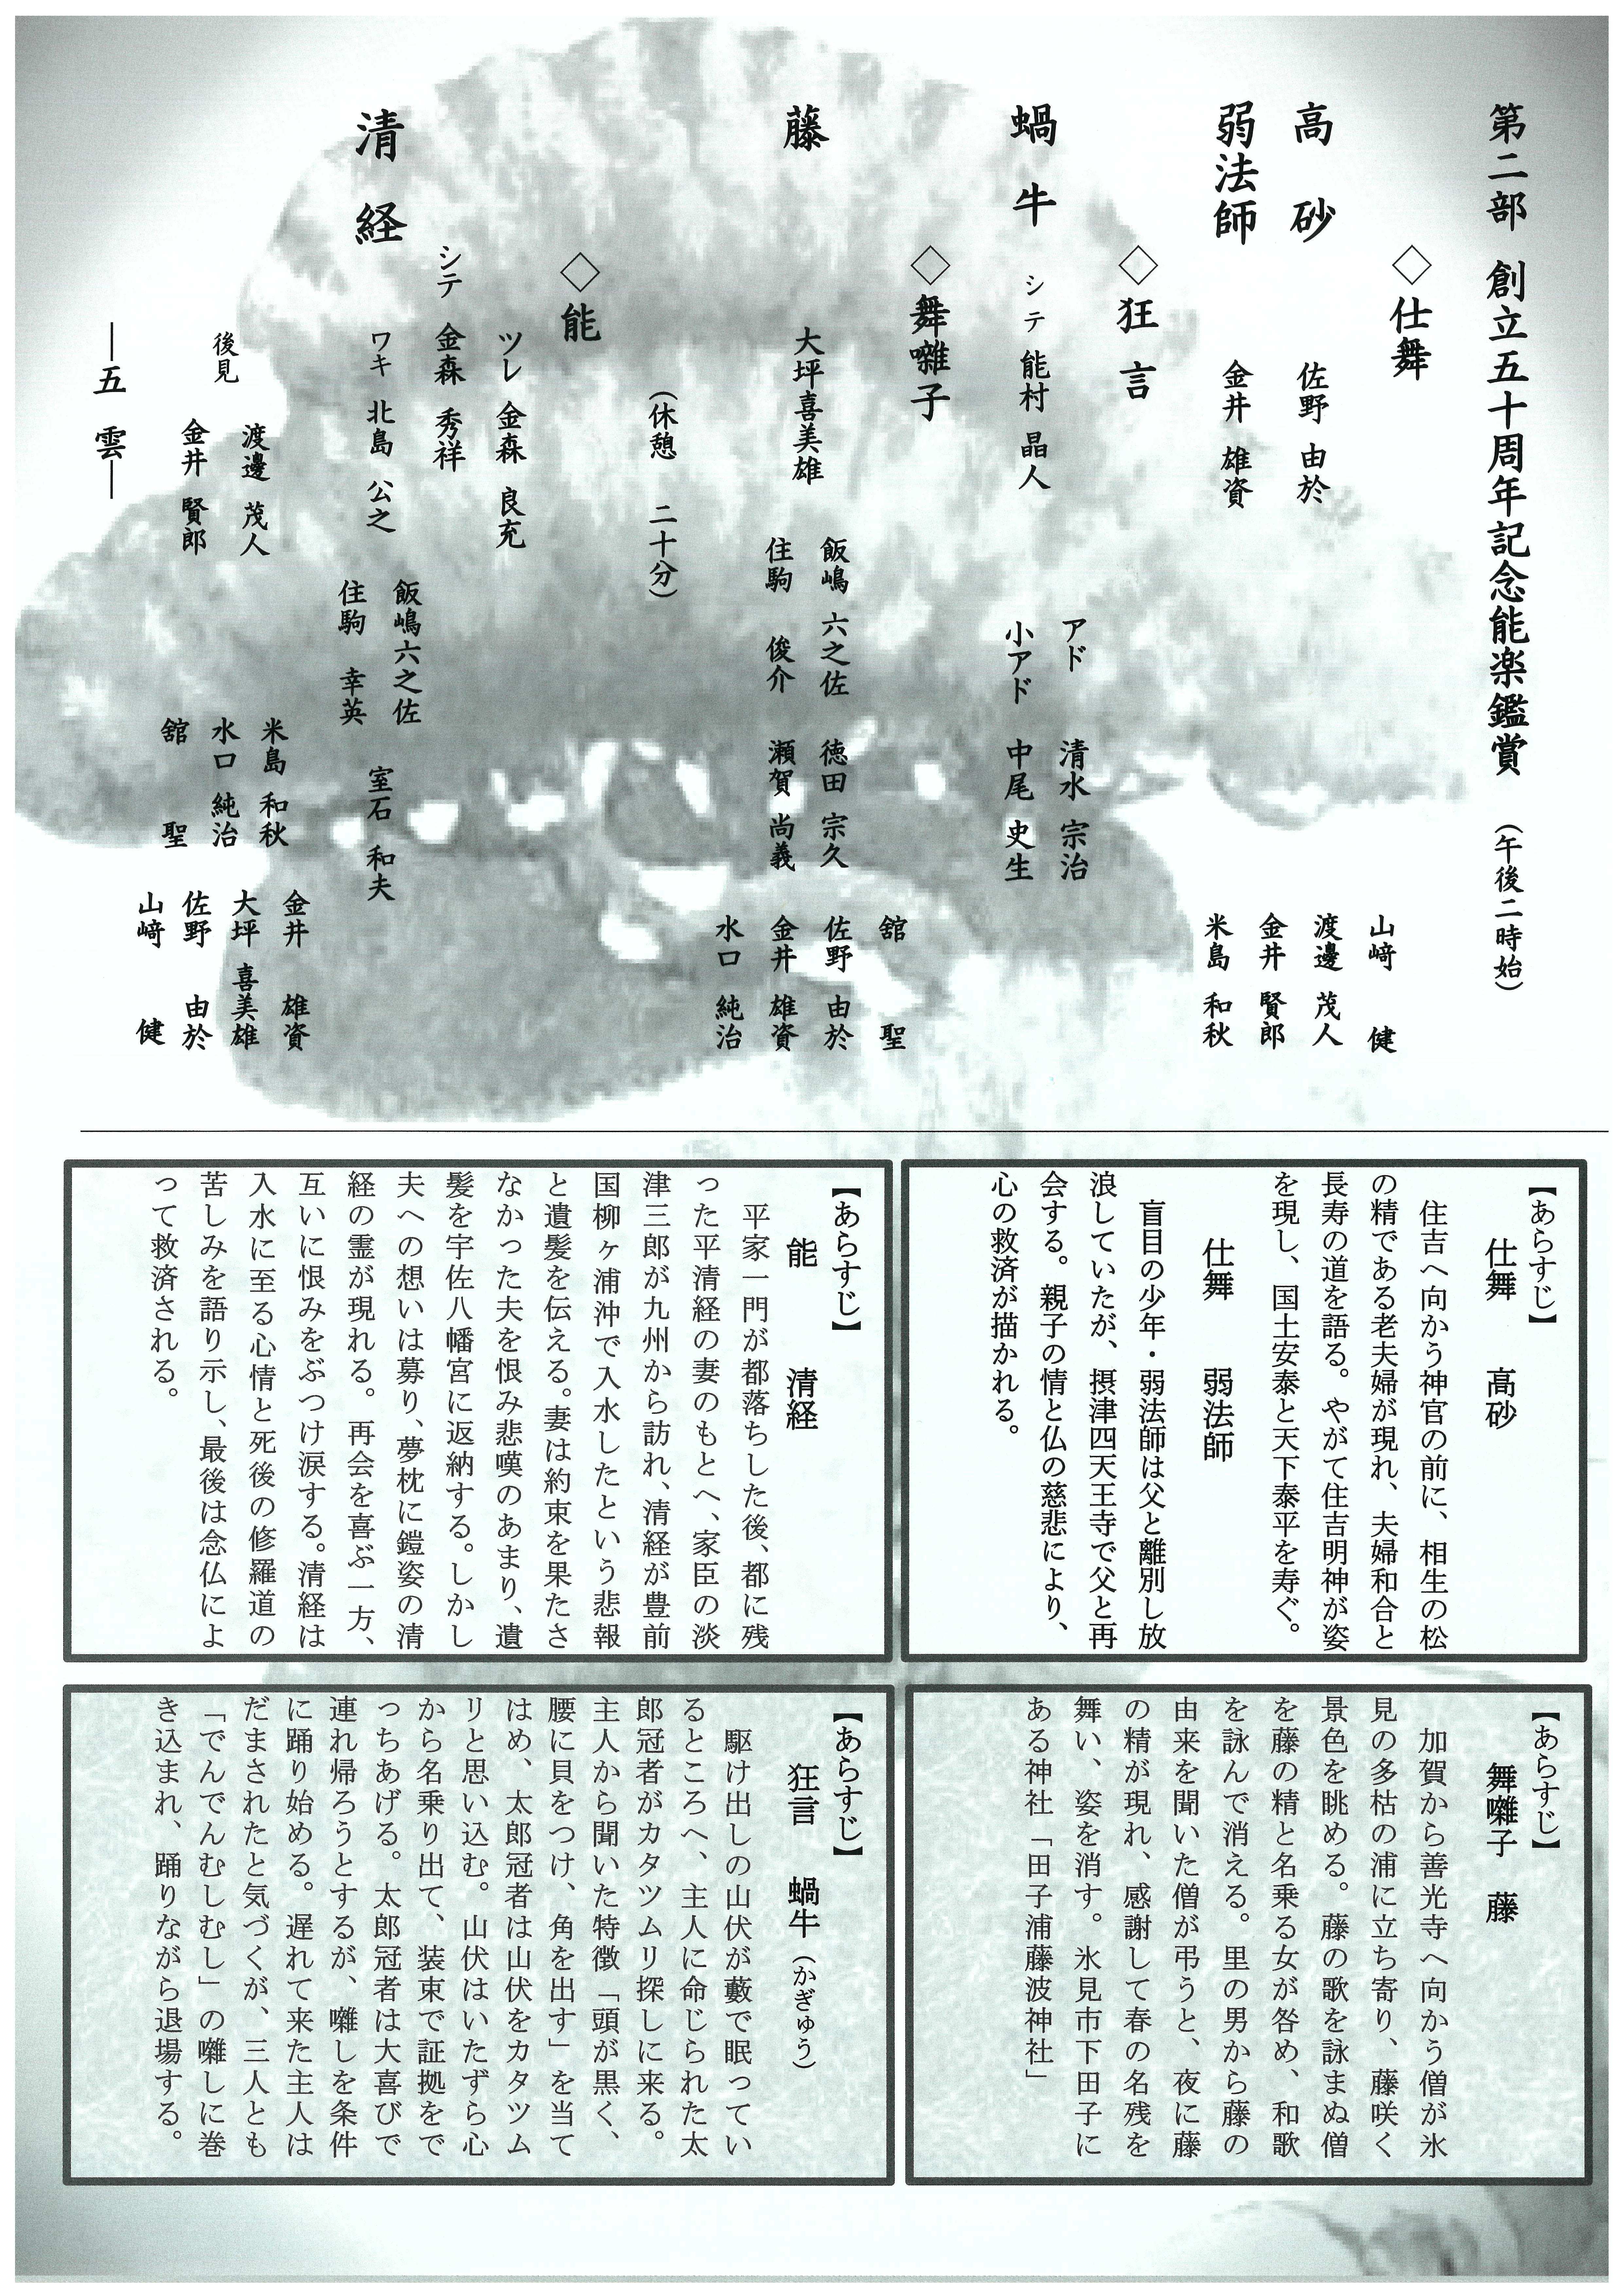 第二部 創立五十周年記念能楽鑑賞 （午後二時始）
◇仕舞
高砂 佐野 由於
弱法師 金井 雄資
山﨑 健
渡邊 茂人
金井 賢郎
米島 和秋
◇狂言
蝸牛 シテ 能村 晶人
アド 清水 宗治
小アド 中尾 史生
◇舞囃子
藤 大坪喜美雄
飯嶋 六之佐
住駒 俊介
徳田 宗久
瀬賀 尚義
舘 聖
佐野 由於
金井 雄資
水口 純治
（休憩 二十分）
◇能
清経
ツレ 金森 良充
シテ 金森 秀祥
ワキ 北島 公之
飯嶋六之佐
住駒 幸英
室石 和夫
後見
渡邊 茂人
金井 賢郎
米島 和秋
水口 純治
舘 聖
金井 雄資
大坪 喜美雄
佐野 由於
山﨑 健
―五雲―
【あらすじ】
仕舞 高砂
住吉へ向かう神官の前に、相生の松
の精である老夫婦が現れ、夫婦和合と
長寿の道を語る。やがて住吉明神が姿
を現し、国土安泰と天下泰平を寿ぐ。
仕舞 弱法師
盲目の少年・弱法師は父と離別し放
浪していたが、摂津四天王寺で父と再
会する。親子の情と仏の慈悲により、
心の救済が描かれる。
【あらすじ】
能 清経
平家一門が都落ちした後、都に残
った平清経の妻のもとへ、家臣の淡
津三郎が九州から訪れ、清経が豊前
国柳ヶ浦沖で入水したという悲報
と遺髪を伝える。妻は約束を果たさ
なかった夫を恨み悲嘆のあまり、遺
髪を宇佐八幡宮に返納する。しかし
夫への想いは募り、夢枕に鎧姿の清
経の霊が現れる。再会を喜ぶ一方、
互いに恨みをぶつけ涙する。清経は
入水に至る心情と死後の修羅道の
苦しみを語り示し、最後は念仏によ
って救済される。
【あらすじ】
舞囃子 藤
加賀から善光寺へ向かう僧が氷
見の多枯の浦に立ち寄り、藤咲く
景色を眺める。藤の歌を詠まぬ僧
を藤の精と名乗る女が咎め、和歌
を詠んで消える。里の男から藤の
由来を聞いた僧が弔うと、夜に藤
の精が現れ、感謝して春の名残を
舞い、姿を消す。氷見市下田子に
ある神社「田子浦藤波神社」
【あらすじ】
狂言 蝸牛（かぎゅう）
駆け出しの山伏が藪で眠ってい
るところへ、主人に命じられた太
郎冠者がカタツムリ探しに来る。
主人から聞いた特徴「頭が黒く、
腰に貝をつけ、角を出す」を当て
はめ、太郎冠者は山伏をカタツム
リと思い込む。山伏はいたずら心
から名乗り出て、装束で証拠をで
っちあげる。太郎冠者は大喜びで
連れ帰ろうとするが、囃しを条件
に踊り始める。遅れて来た主人は
だまされたと気づくが、三人とも
「でんでんむしむし」の囃しに巻
き込まれ、踊りながら退場する。